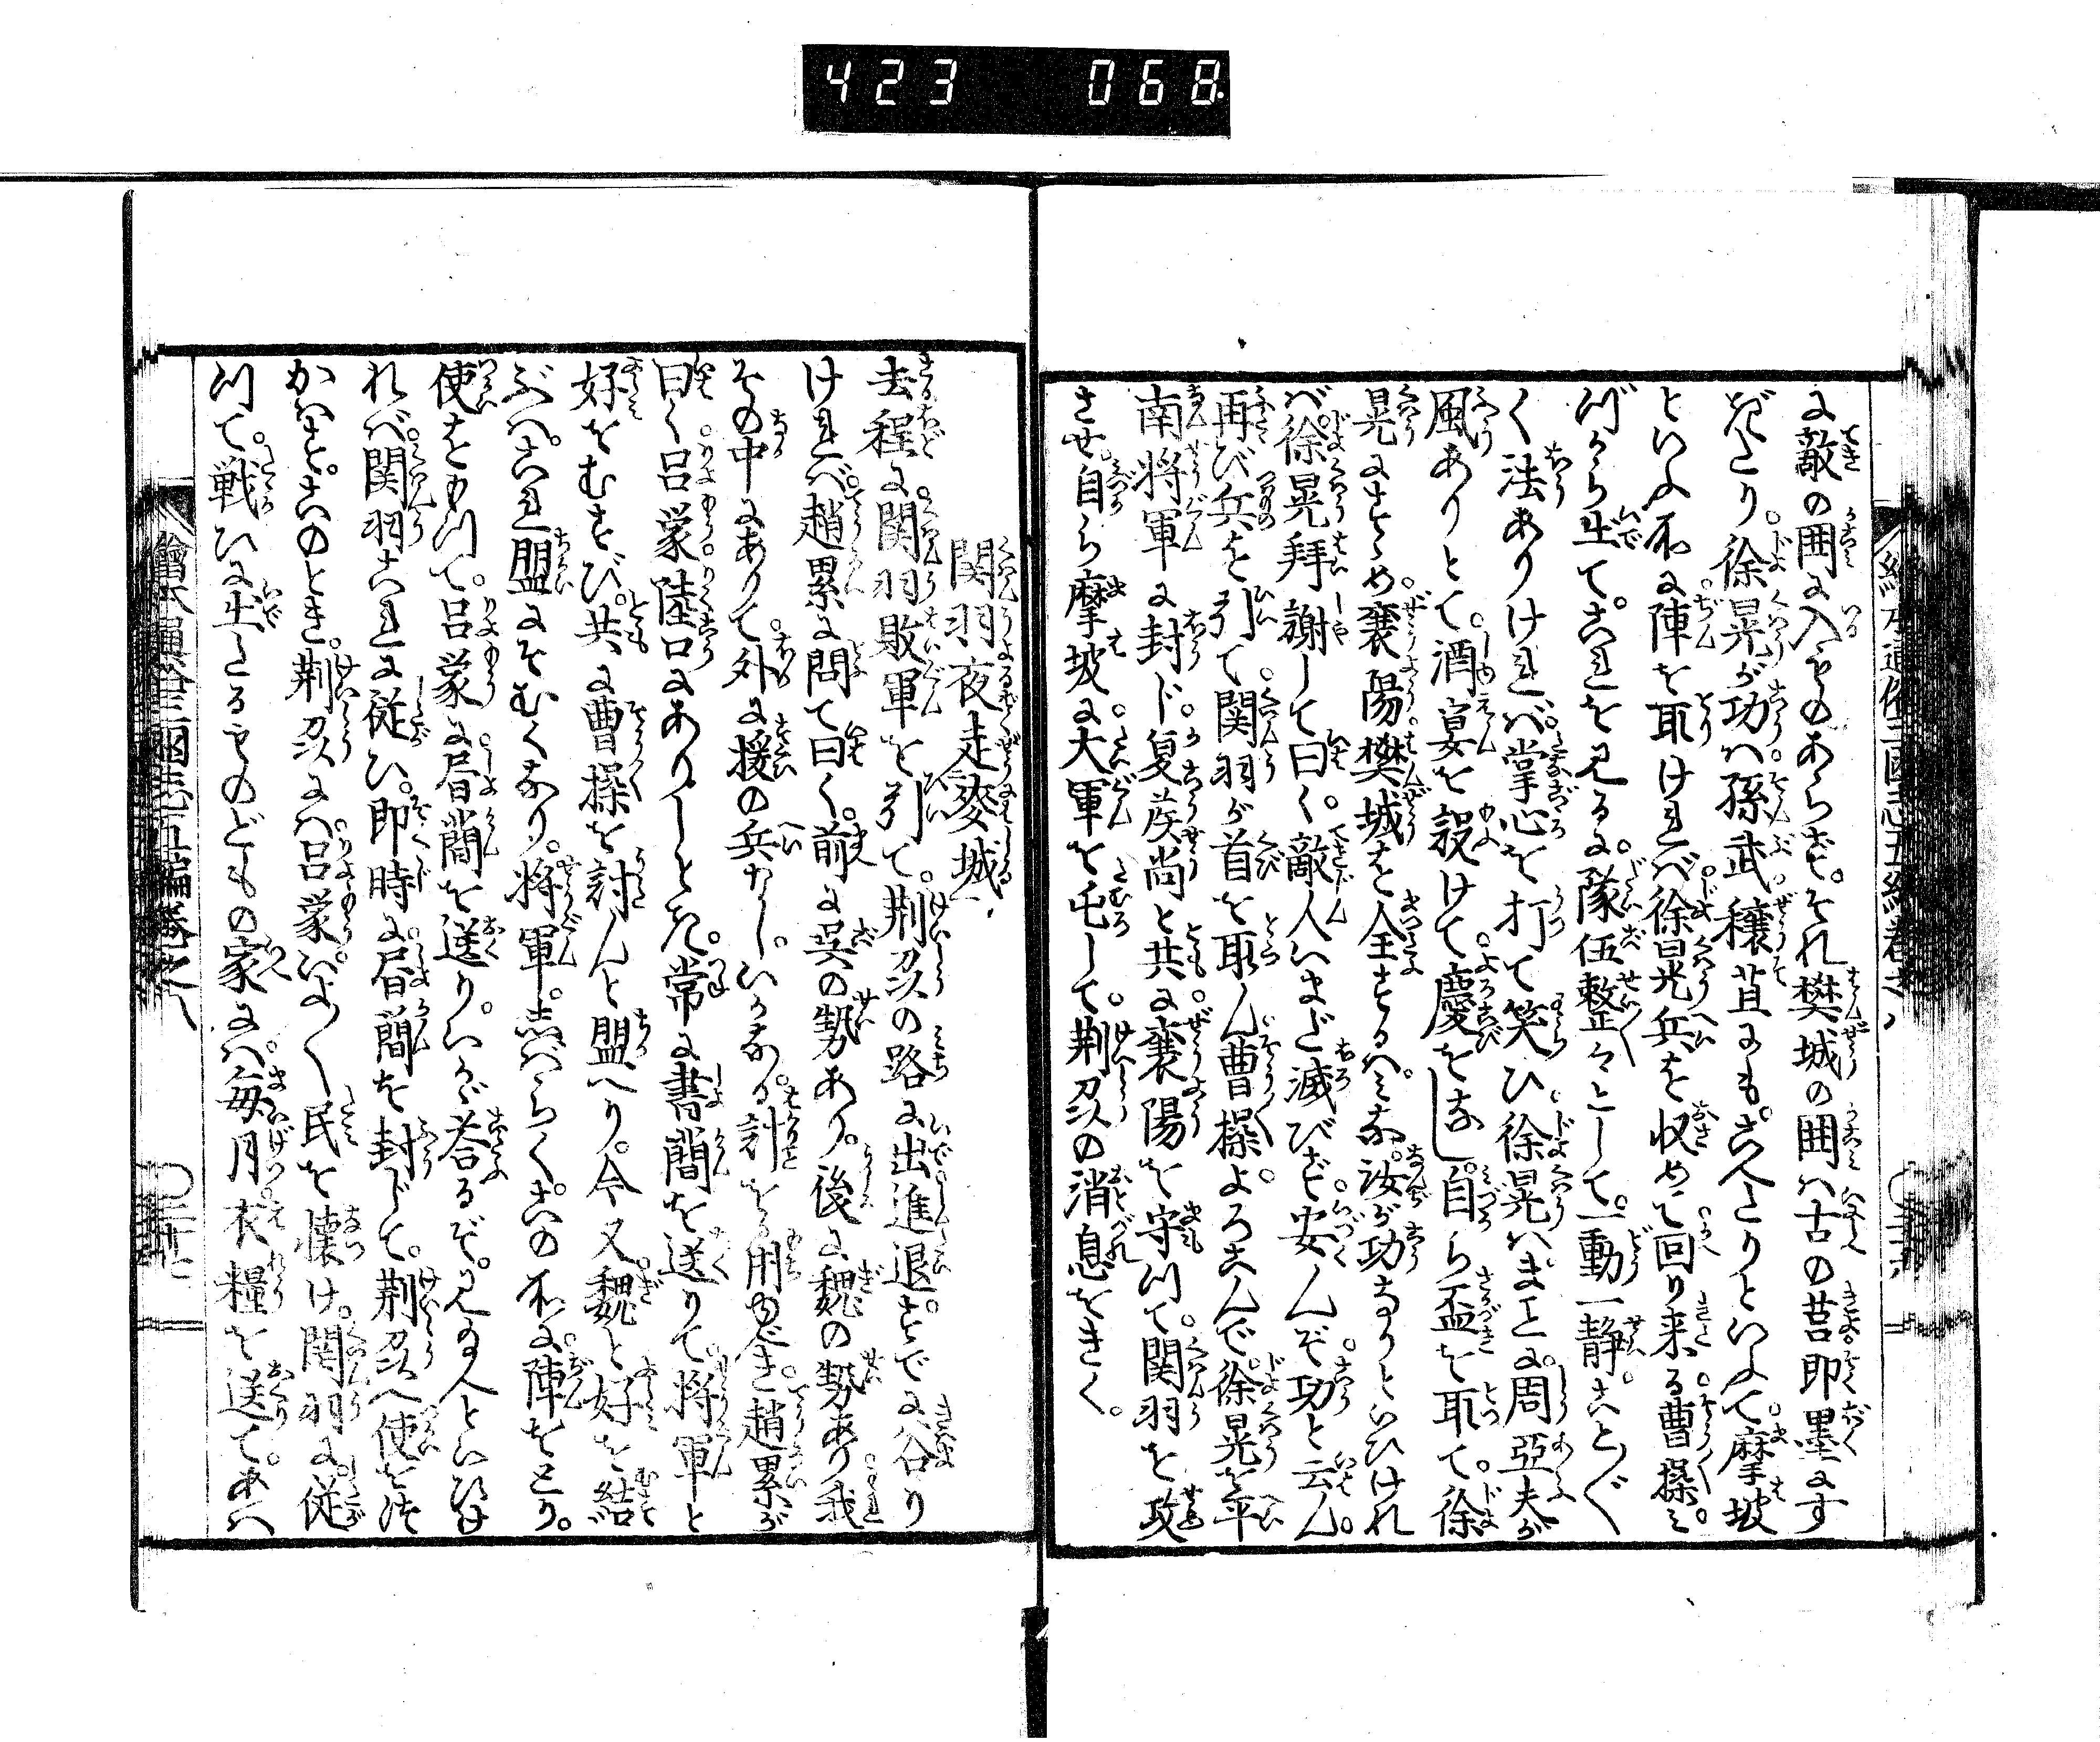 423 068
に敵の囲に入ものあらず。それ樊城の囲は古の莒即墨にす
ぎたり。徐晃が功は。孫武。穰苴にも。こへたりといふて。摩坡
といふ所に陣を取ければ。徐晃兵を収めて回り来る。曹操。み
づから出て。これを見るに。隊伍整々として。一動一静。こと〴〵
く法ありければ。掌心を打て笑ひ。徐晃はまことに。周亞夫が
風ありとて。酒宴を設けて。慶をなし。自ら盃を取て。徐
晃にすゝめ。襄陽。樊城を全するは。みな。汝が功なりといひけれ
ば。徐晃拜謝して曰く。敵人いまだ滅びず。安んぞ功と云ん。
再び兵を引て。関羽が首を取ん。曹操。よろこんで。徐晃を平
南将軍に封じ。夏侯尚と共に。襄陽を守つて。関羽を攻
させ。自ら摩坡に大軍を屯して。荆州の消息をきく。
関羽夜走麥城
去程に。関羽敗軍を引て。荆州の路に出。進退。すでに谷り
ければ。趙累に問て曰く。前に呉の勢あり。後に魏の勢あり。我
その中にありて。外に援の兵なし。いかなる計をか用ゆべき。趙累が
曰く。呂蒙。陸口にありしとき。常に書簡を送りて。将軍と
好をむすび。共に曹操を討んと盟へり。今又。魏と好を結
ぶは。これ盟にそむくなり。将軍。しばらくこの所に。陣をとり。
使をもつて。呂蒙に。書簡を送り。いかゞ答るぞ。見玉へといひけ
れば。関羽これに従ひ。即時に。書簡を封じて。荆州へ使をつ
かはす。このとき。荆州には。呂蒙。いよ〳〵民を懐け。関羽に。従
つて。戦ひに出たるものどもの家には。毎月。衣糧を送て。あは